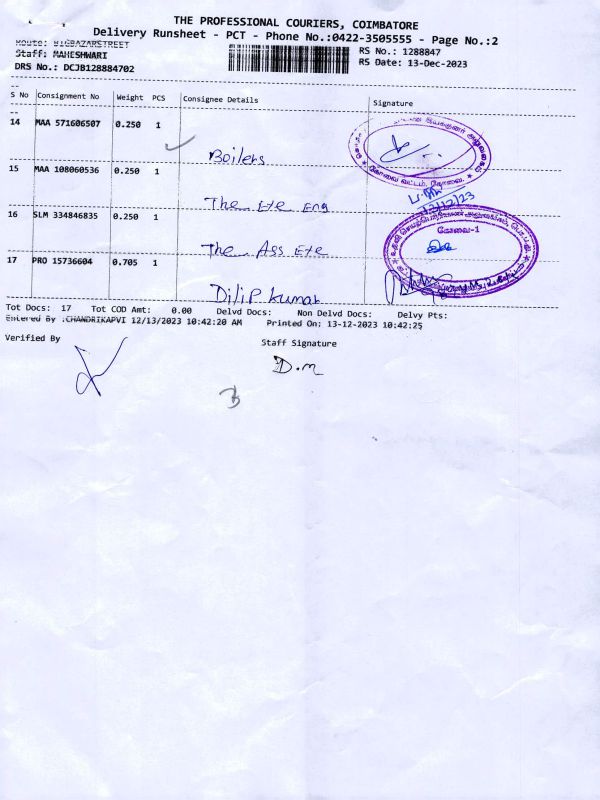 THE PROFESSIONAL COURIERS, COIMBATORE
Delivery Runsheet - PCT - Phone No.:0422-3505555 - Page No.:2
Route: BIGBAZARSTREET
RS No.: 1288847
Staff: MAHESHWARI
RS Date: 13-Dec-2023
DRS No.: DCJB128884702
S No Consignment No Weight PCS Consignee Details Signature
14 MAA 571606507 0.250 1
Boilers
15 MAA 108060536 0.250 1
கோவை வட்டம், கோவை.
The Exe Eng
13/12/23
16 SLM 334846835 0.250 1
கோவை-1
The Ass Exe
17 PRO 15736604 0.705 1
Dilip kumar
Tot Docs: 17 Tot COD Amt: 0.00 Delvd Docs: Non Delvd Docs: Delvy Pts:
Entered By :CHANDRIKAPVI 12/13/2023 10:42:20 AM Printed On: 13-12-2023 10:42:25
Verified By
Staff Signature
D.M